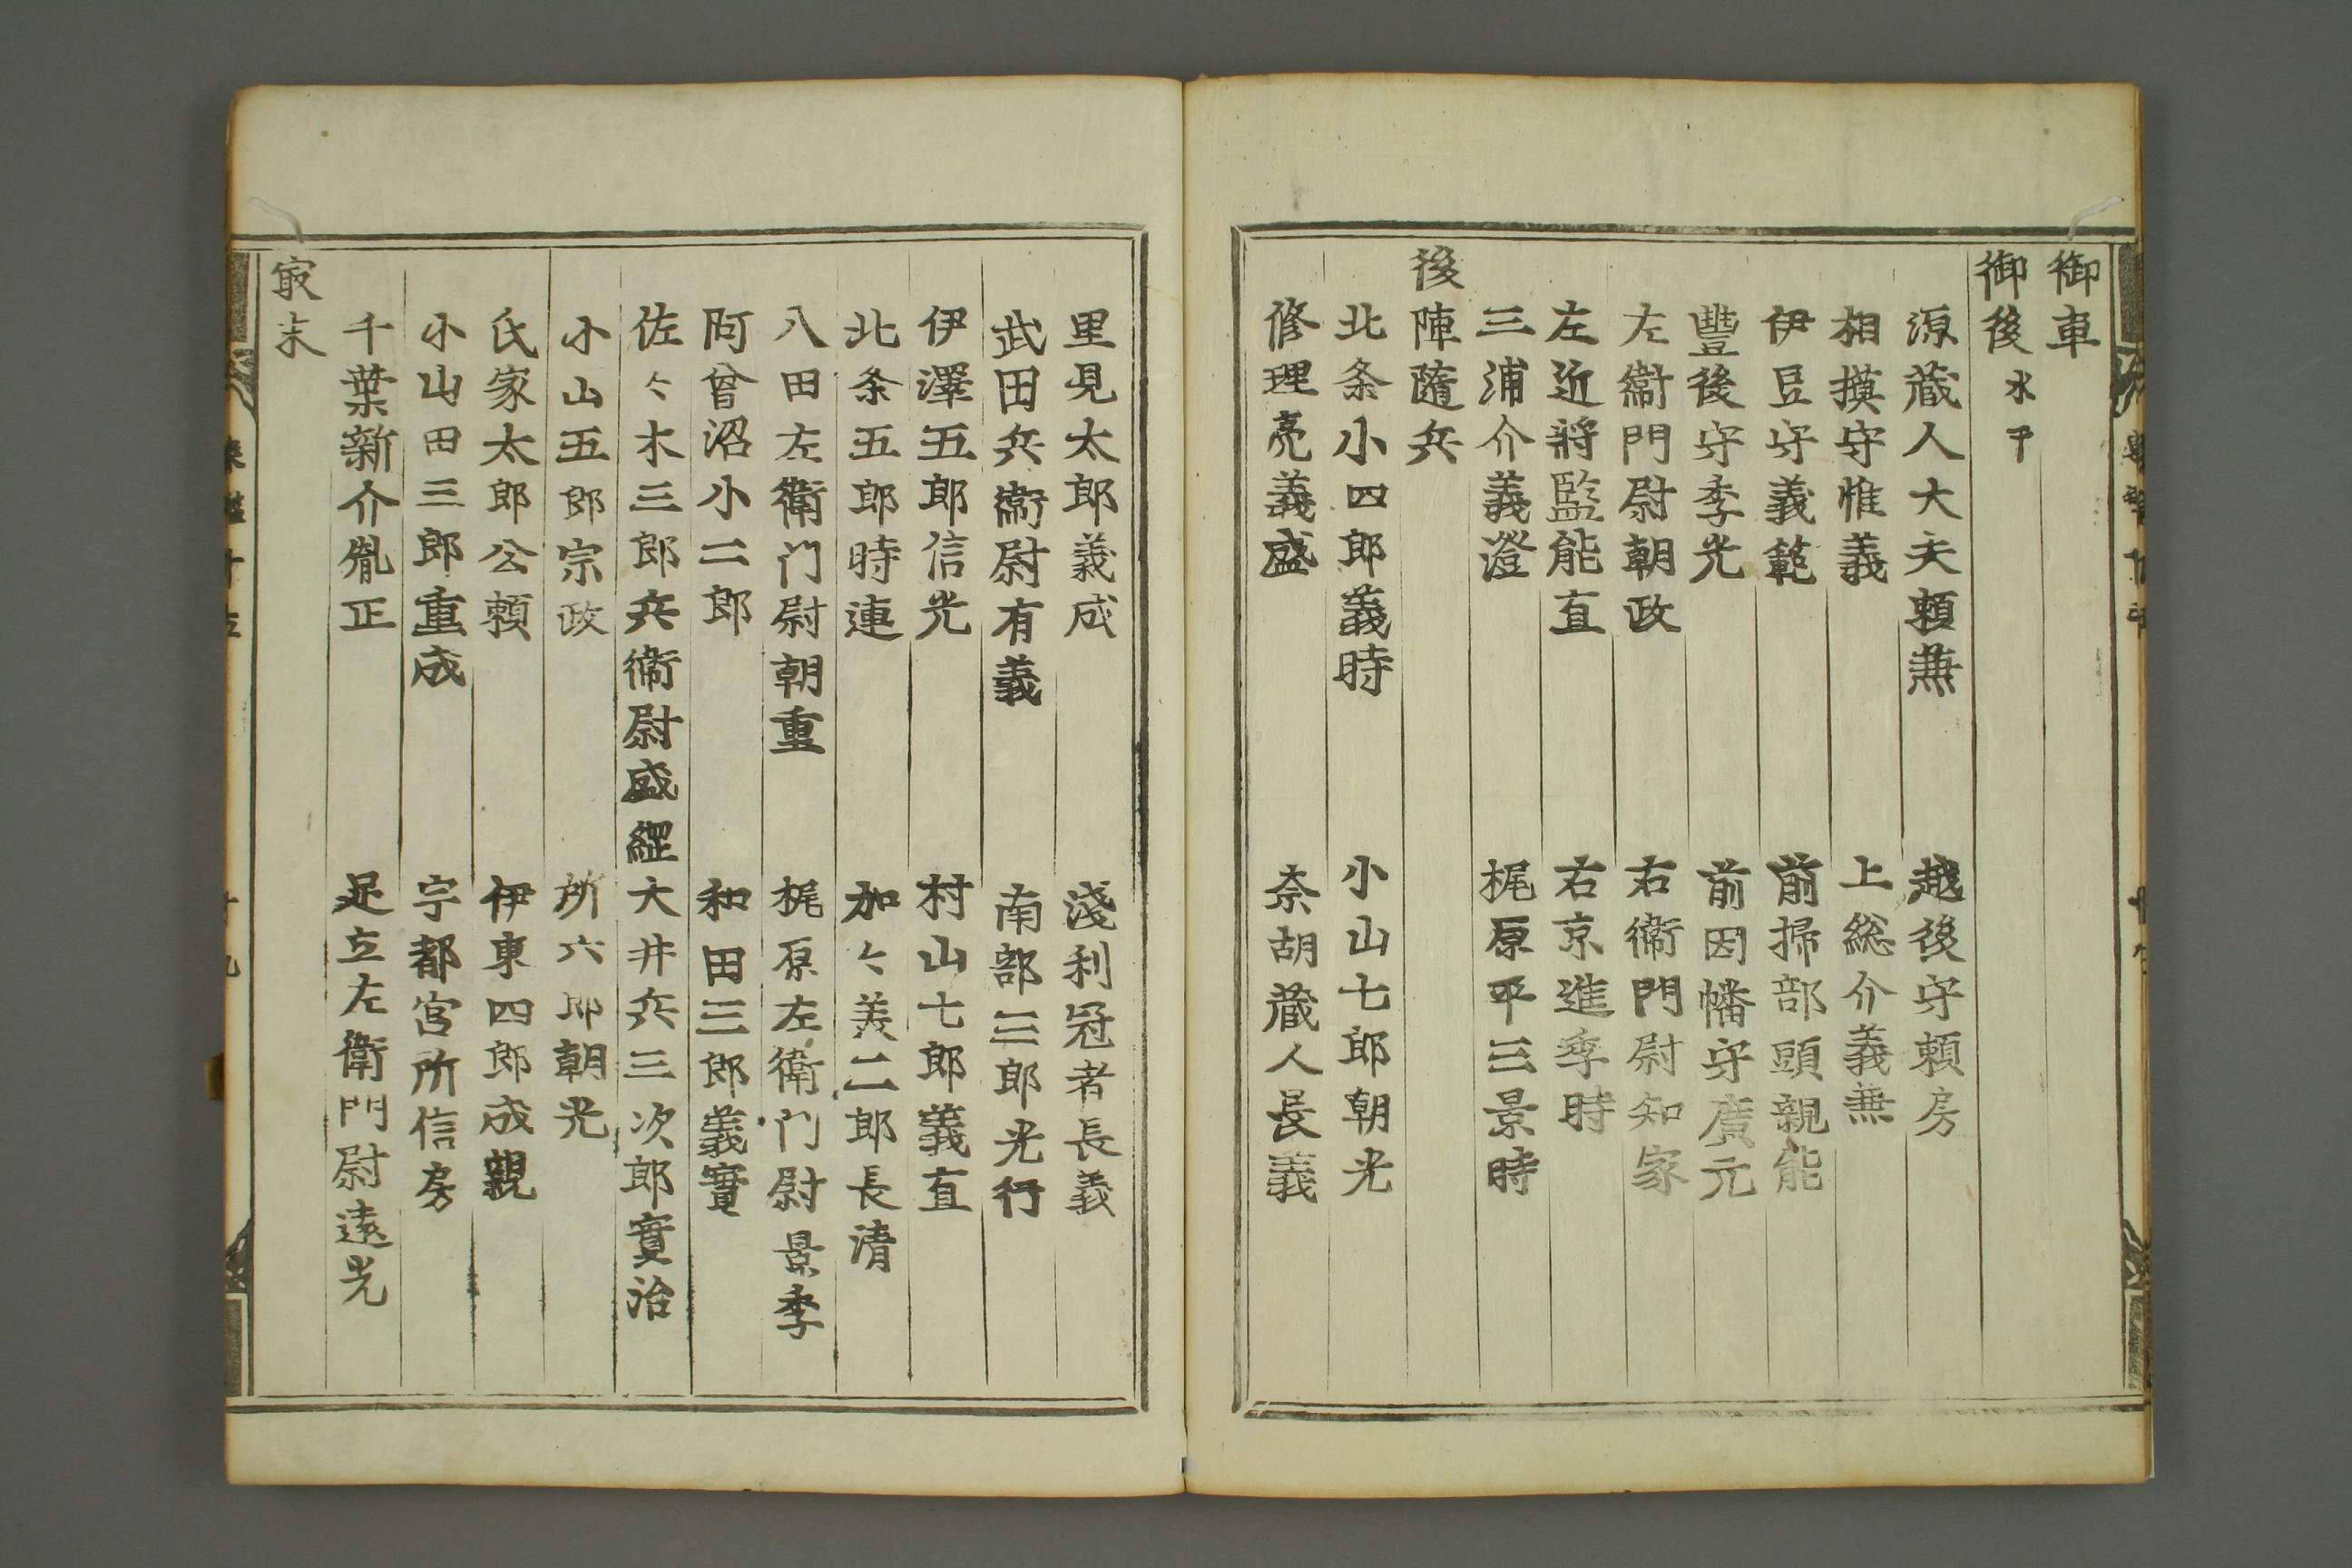 御車
御後水干
源蔵人大夫頼兼 越後守頼房
相摸守惟義 上総介義兼
伊豆守義範 前掃部頭親能
豊後守季光 前因幡守廣元
左衛門尉朝政 右衛門尉知家
左近将監能直 右京進季時
三浦介義澄 梶原平三景時
後陣隨兵
北条小四郎義時 小山七郎朝光
修理亮義盛 奈胡蔵人長義
里見太郎義成 淺利冠者長義
武田兵衛尉有義 南部三郎光行
伊澤五郎信光 村山七郎義直
北条五郎時連 加〻美二郎長清
八田左衛门尉朝重 梶原左衛门尉景季
阿曾沼小二郎 和田三郎義實
佐〻木三郎兵衛尉盛綛 大井兵三次郎實治
小山五郎宗政 所六郎朝光
氏家太郎公頼 伊東四郎成親
小山田三郎重成 宇都宮所信房
千葉新介胤正 足立左衛門尉遠光
㝡末